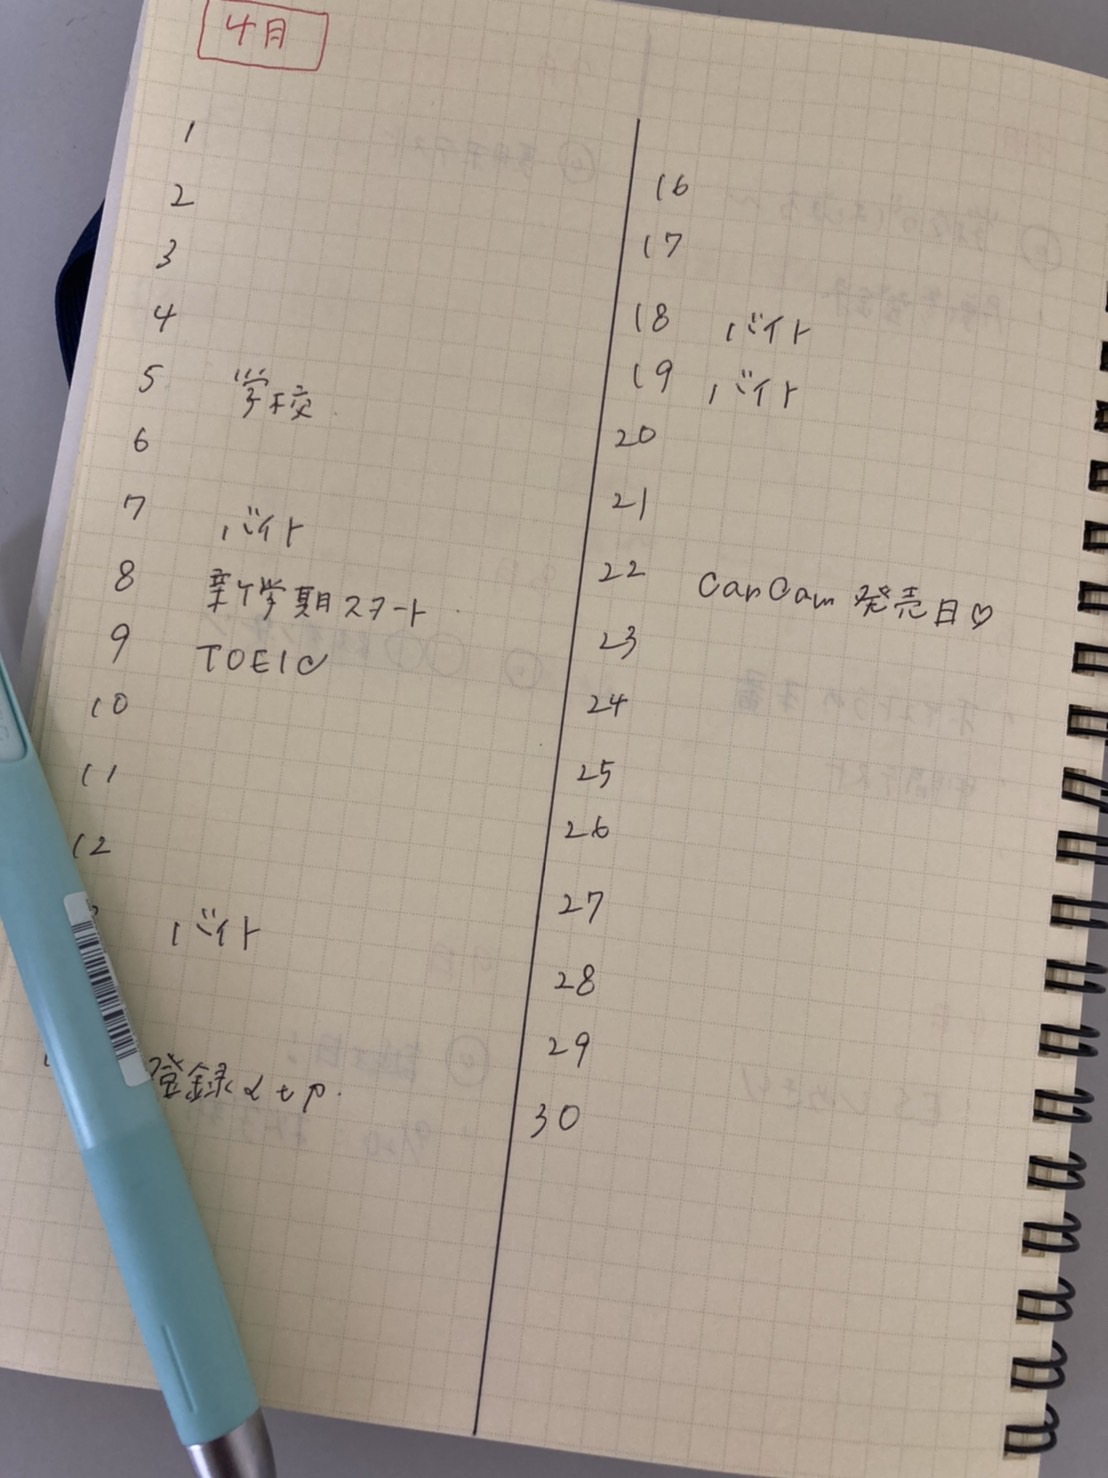 4月
1
2
3
4
5 学校
6
7 バイト
8 新学期スタート
9 TOEIC
10
11
12
バイト
登録〆切.
16
17
18 バイト
19 バイト
20
21
22 CanCam 発売日♡
23
24
25
26
27
28
29
30